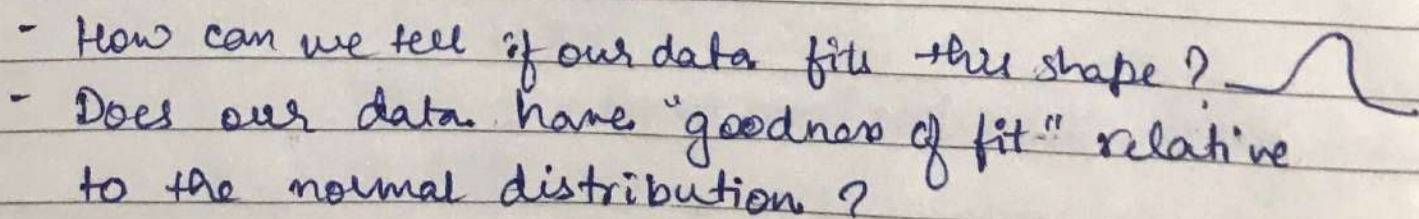 - How can we tell if our data fits this shape?
- Does our data have "goodness of fit" relative
to the normal distribution?